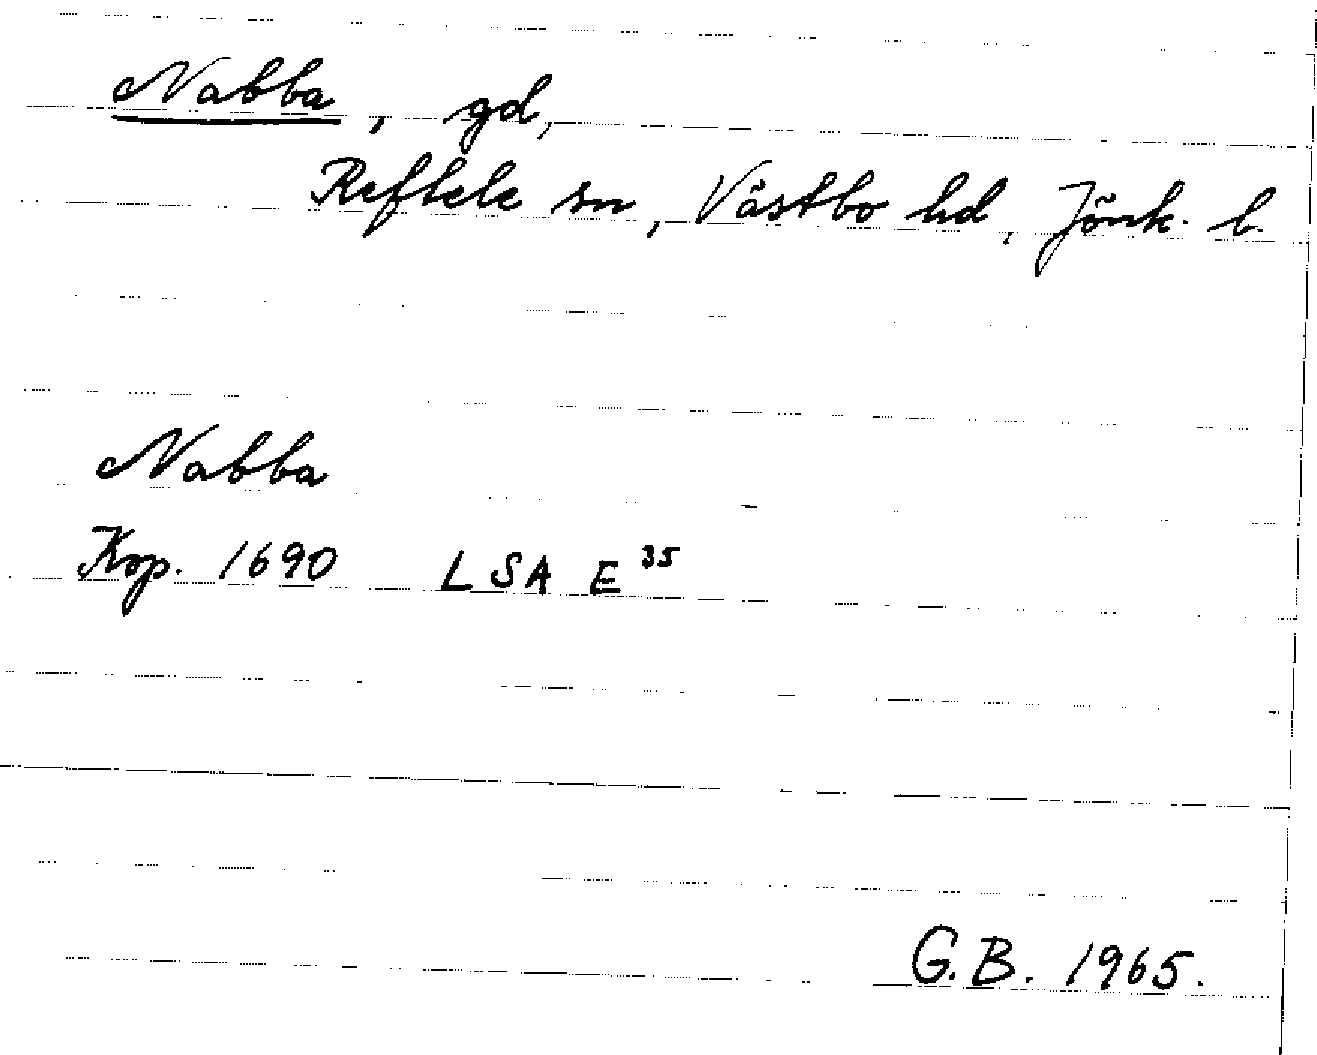 Nabba, gd,
Reftele sn, Västbo hd, Jönk. l.
Nabba
Kop. 1690 LSA E 35
G.B. 1965.